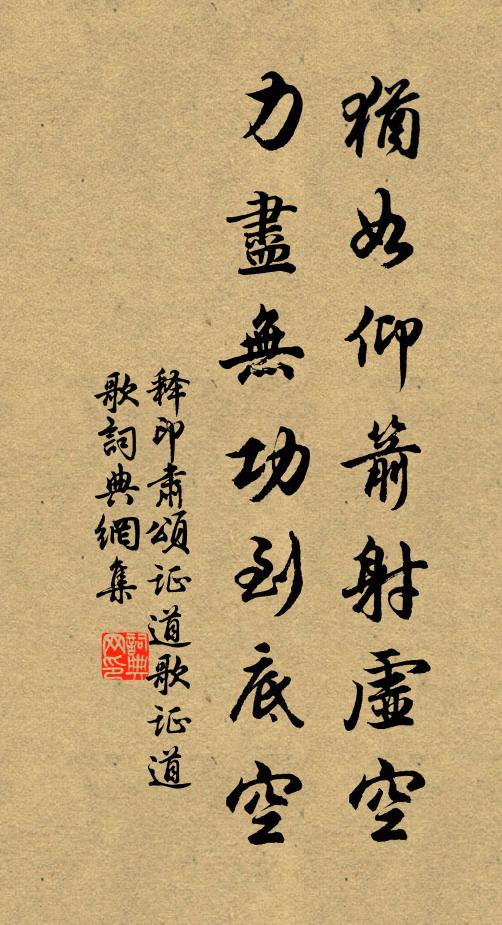 猶如仰箭射虛空
力盡無功到底空
释印肅頌证道歌证道
歌詞典網集
詞典
网印